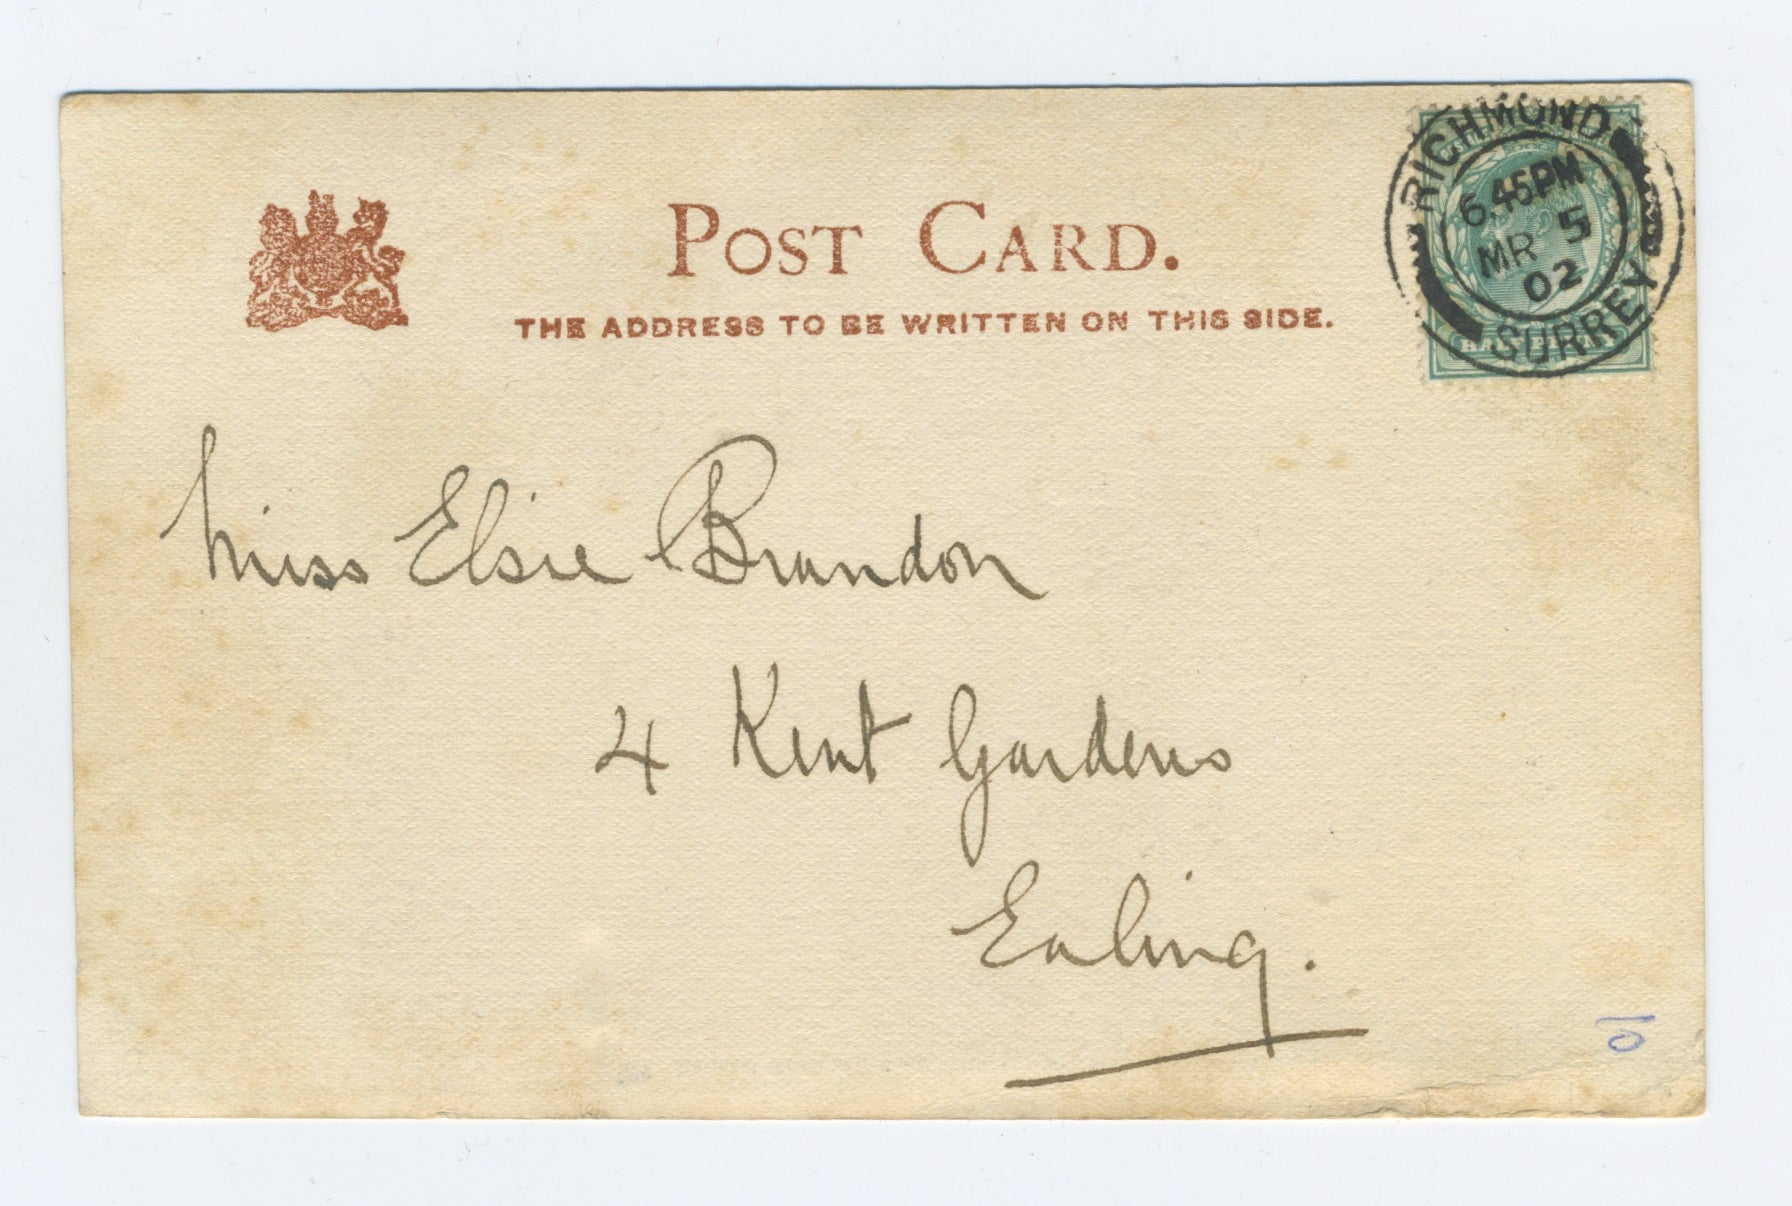 POST CARD.
THE ADDRESS TO BE WRITTEN ON THIS SIDE.
RICHMOND
6.45PM
MR 5
02
SURREY
HALF PENNY
Miss Elsie Brandon
4 Kent Gardens
Ealing.
10